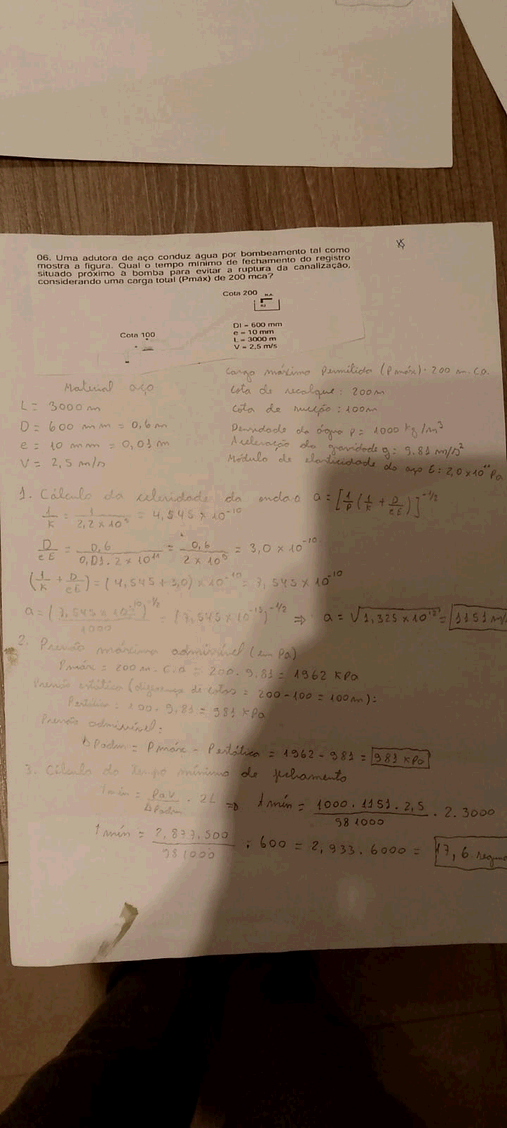 06. Uma adutora de aço conduz água por bombeamento tal como
mostra a figura. Qual o tempo mínimo de fechamento do registro
situado próximo à bomba para evitar a ruptura da canalização,
considerando uma carga total (Pmáx) de 200 mca?
Cota 200
Cota 100
DI = 600 mm
e = 10 mm
L = 3000 m
V = 2,5 m/s
Material aço
L = 3000 m
D = 600 mm = 0,6 m
e = 10 mm = 0,01 m
V = 2,5 m/s
Carga máxima permitida (Pmáx): 200 m. c.a.
Cota de recalque: 200m
Cota de sucção: 100m
Densidade da água ρ = 1000 kg/m³
Aceleração da gravidade g: 9.81 m/s²
Módulo de elasticidade do aço E: 2,0 x 10¹¹ Pa
1. Cálculo da celeridade da onda a = [1/ρ (1/K + D/eE)]^-1/2
1/K = 1/2,2 x 10⁹ = 4,545 x 10^-10
D/eE = 0,6/0,01. 2 x 10¹¹ = 0,6/2 x 10⁹ = 3,0 x 10^-10
(1/K + D/eE) = (4,545 + 3,0) x 10^-10 = 7,545 x 10^-10
a = (7,545 x 10^-10/1000)^-1/2 = (7,545 x 10^-13)^-1/2 ⇒ a = √1,325 x 10^-13 = 1151 m/
2. Pressão máxima admissível (em Pa)
Pmáx = 200 m. c.a = 200 . 9.81 = 1962 KPa
Pressão estática (diferença de cotas = 200 - 100 = 100m):
Pestática = 100 . 9.81 = 981 KPa
Pressão admissível:
ΔPadm = Pmáx - Pestática = 1962 - 981 = 981 KPa
3. Cálculo do tempo mínimo de fechamento
Tmin = ρaV/ΔPadm . 2L ⇒ Tmín = 1000. 1151. 2,5/981000 . 2. 3000
Tmín = 2,877,500/981000 . 600 = 2,933. 6000 = 17,6